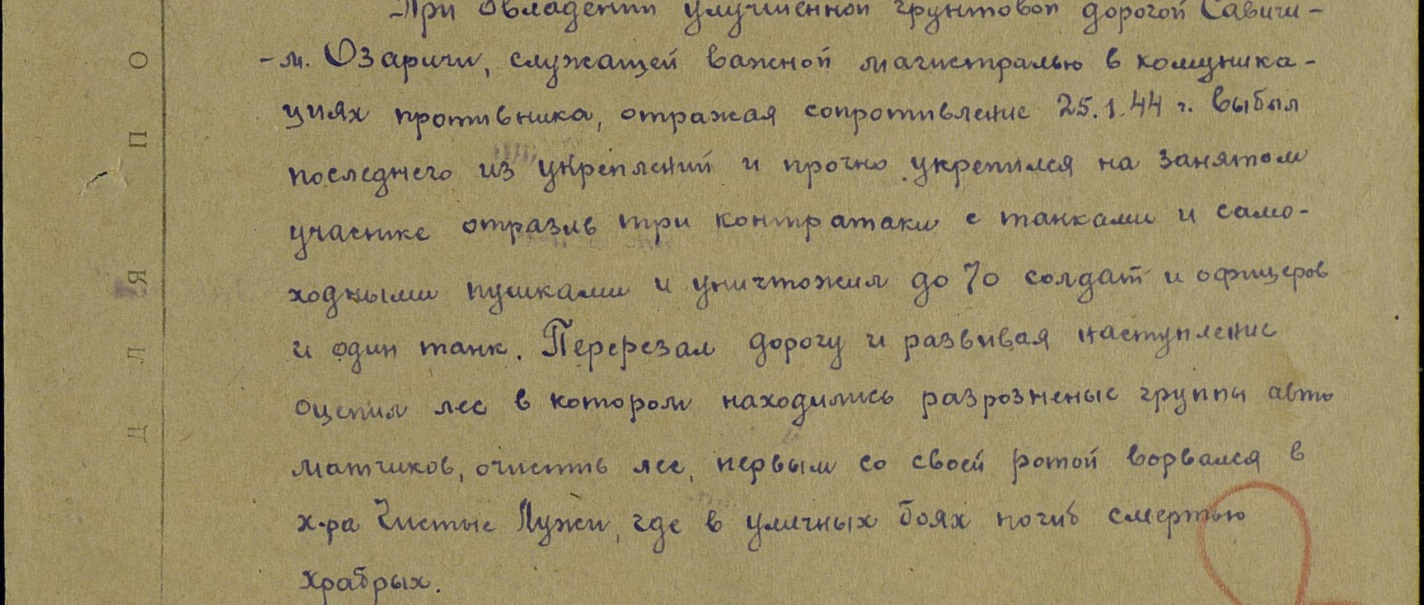 При овладении улучшенной грунтовой дорогой Савичи -
- м. Озаричи, служащей важной магистралью в комуника-
циях противника, отражая сопротивление 25.1.44 г. выбил
последнего из укреплений и прочно укрепился на занятом
участке отразив три контратаки с танками и само-
ходными пушками и уничтожил до 70 солдат и офицеров
и один танк. Перерезал дорогу и развивая наступление
оцепил лес в котором находились разрозненые группы авто
матчиков, очистив лес, первым со своей ротой ворвался в
х-ра Чистые Лужи, где в уличных боях погиб смертью
храбрых.
Д Л Я П О